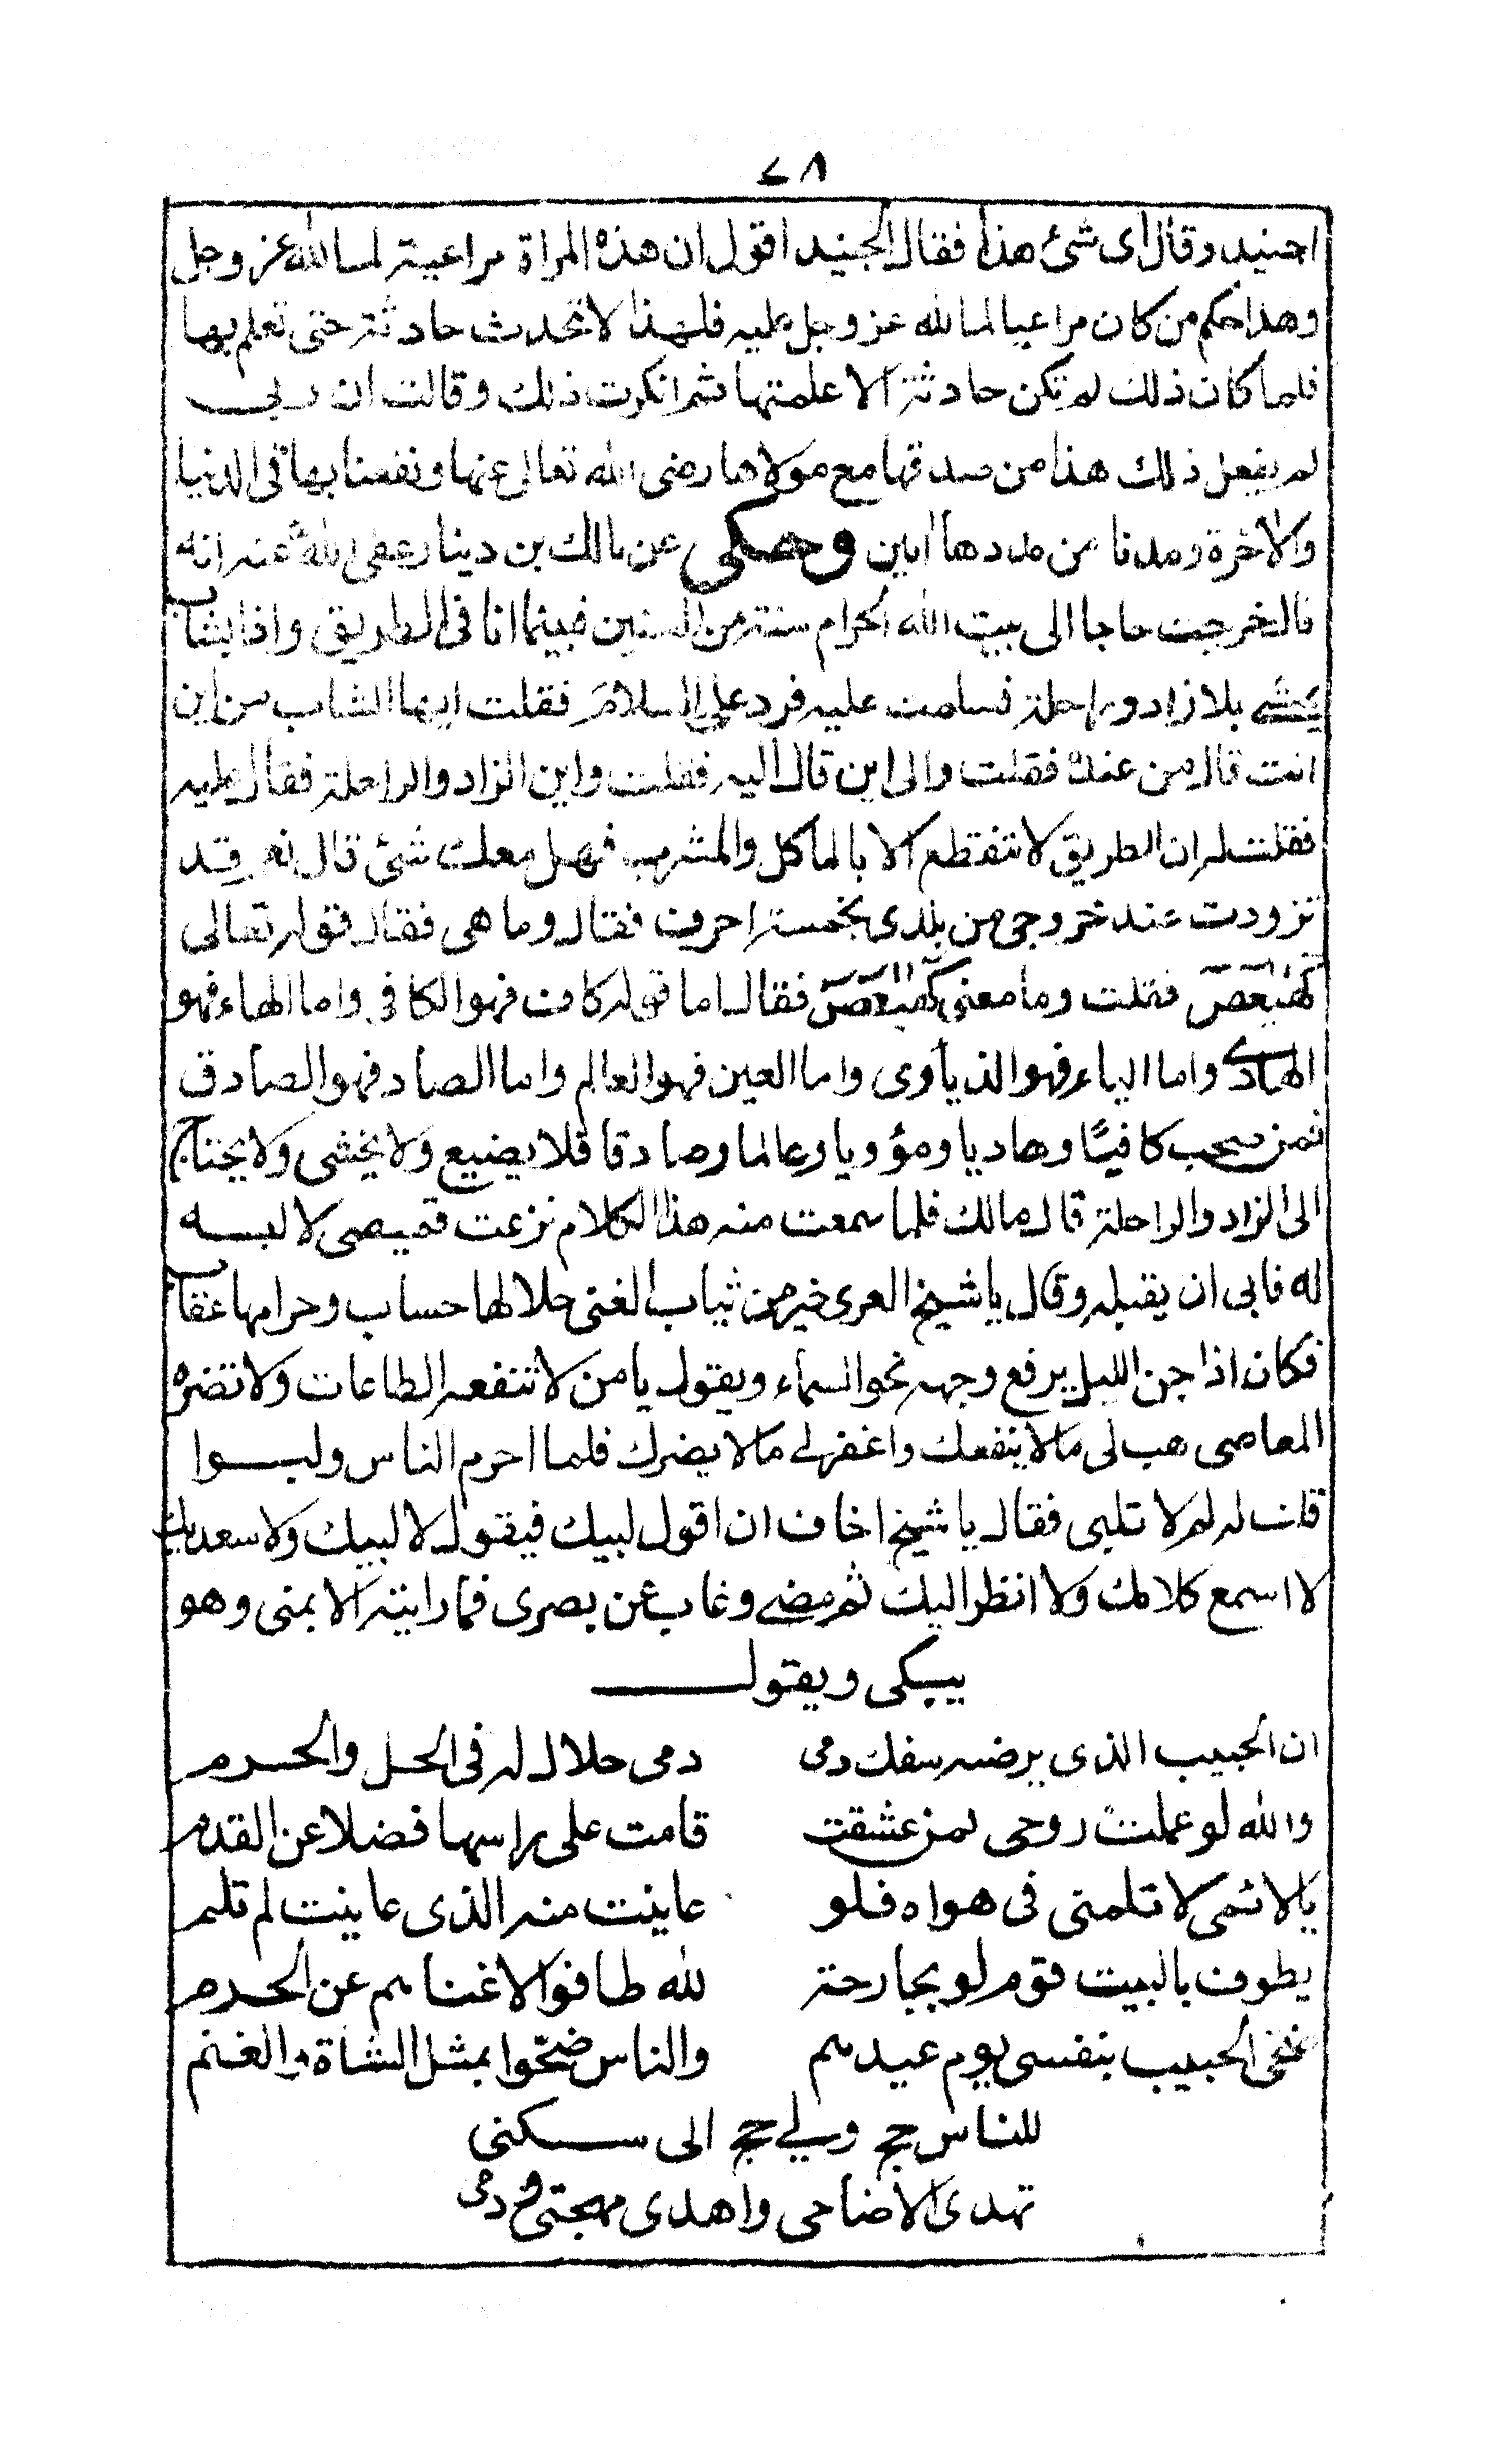 ٧٨
اجنيد وقال اى شئ هذا فقال الجنيد اقول ان هذه المراة مراعية لما لله عز وجل
وهذا حكم من كان مراعيا لما لله عز وجل عليه فلهذا لا تحدث حادثة حتى تعلم بها
فلما كان ذلك لم تكن حادثة الا علمتها ثم انكرت ذلك وقالت ان ربى
لم يفعل ذلك هذا من صدقها مع مولاها رضى الله تعالى عنها ونفعنا بها فى الدنيا
والاخرة ومدنا من مددها امين وحكى عن مالك بن دينار رضى الله عنه انه
قال خرجت حاجا الى بيت الله الحرام سنة من السنين فبينما انا فى الطريق واذا بشاب
يمشى بلا زاد وراحلة فسلمت عليه فرد على السلام فقلت ايها الشاب من اين
انت قال من عنده فقلت والى اين قال اليه فقلت واين الزاد والراحلة فقال عليه
فقلت له ان الطريق لا تنقطع الا بالماكل والمشرب فهل معك شئ قال نعم قد
تزودت عند خروجى من بلدى بخمسة احرف فقال وما هى فقال قوله تعالى
كهيعص فقلت وما معنى كهيعص فقال اما قوله كاف فهو الكافى واما الهاء فهو
الهادى واما الياء فهو الذى ياوى واما العين فهو العالم واما الصاد فهو الصادق
فمن صحب كافيًا وهاديا ومؤويا وعالما وصادقا فلا يضيع ولا يخشى ولا يحتاج
الى الزاد والراحلة قال مالك فلما سمعت منه هذا الكلام نزعت قميصى لالبسه
له فابى ان يقبله وقال يا شيخ العرى خير من ثياب الغنى حلالها حساب وحرامها عقاب
فكان اذا جن الليل يرفع وجهه نحو السماء ويقول يا من لا تنفعه الطاعات ولا تضره
المعاصى هب لى ما لا ينفعك واغفر لى ما لا يضرك فلما احرم الناس ولبوا
قلت له لم لا تلبى فقال يا شيخ اخاف ان اقول لبيك فيقول لا لبيك ولا سعديك
لا اسمع كلامك ولا انظر اليك ثم مضى وغاب عن بصرى فما رايته الا بمنى وهو
يبكى ويقول
ان الحبيب الذى يرضيه سفك دمى دمى حلال له فى الحل والحرم
والله لو علمت روحى بمن عشقت قامت على راسها فضلا عن القدم
يا لائمى لا تلمنى فى هواه فلو عاينت منه الذى عاينت لم تلم
يطوف بالبيت قوم لو بجارحة لله طافوا لاغناهم عن الحرم
ضحى الحبيب بنفسى يوم عيدهم والناس ضحّوا بمثل الشاة والغنم
للناس حج ولى حج الى سكنى
تهدى الاضاحى واهدى مهجتى ودمى